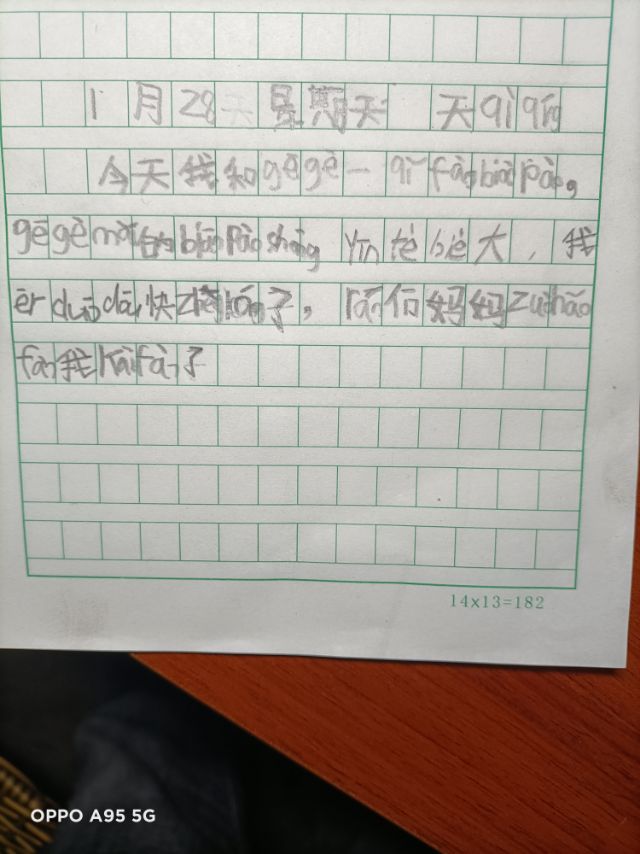 1月28 星期天 天qì qíng
今天我和gē gè一qǐ fàng biān pào,
gē gè mǎi的biān pào shēng yīn tè bié大,我
ěr duō dōu快zhèn lóng了,rán后妈妈zuò hǎo
fàn我kāi fàn了
14x13=182
OPPO A95 5G